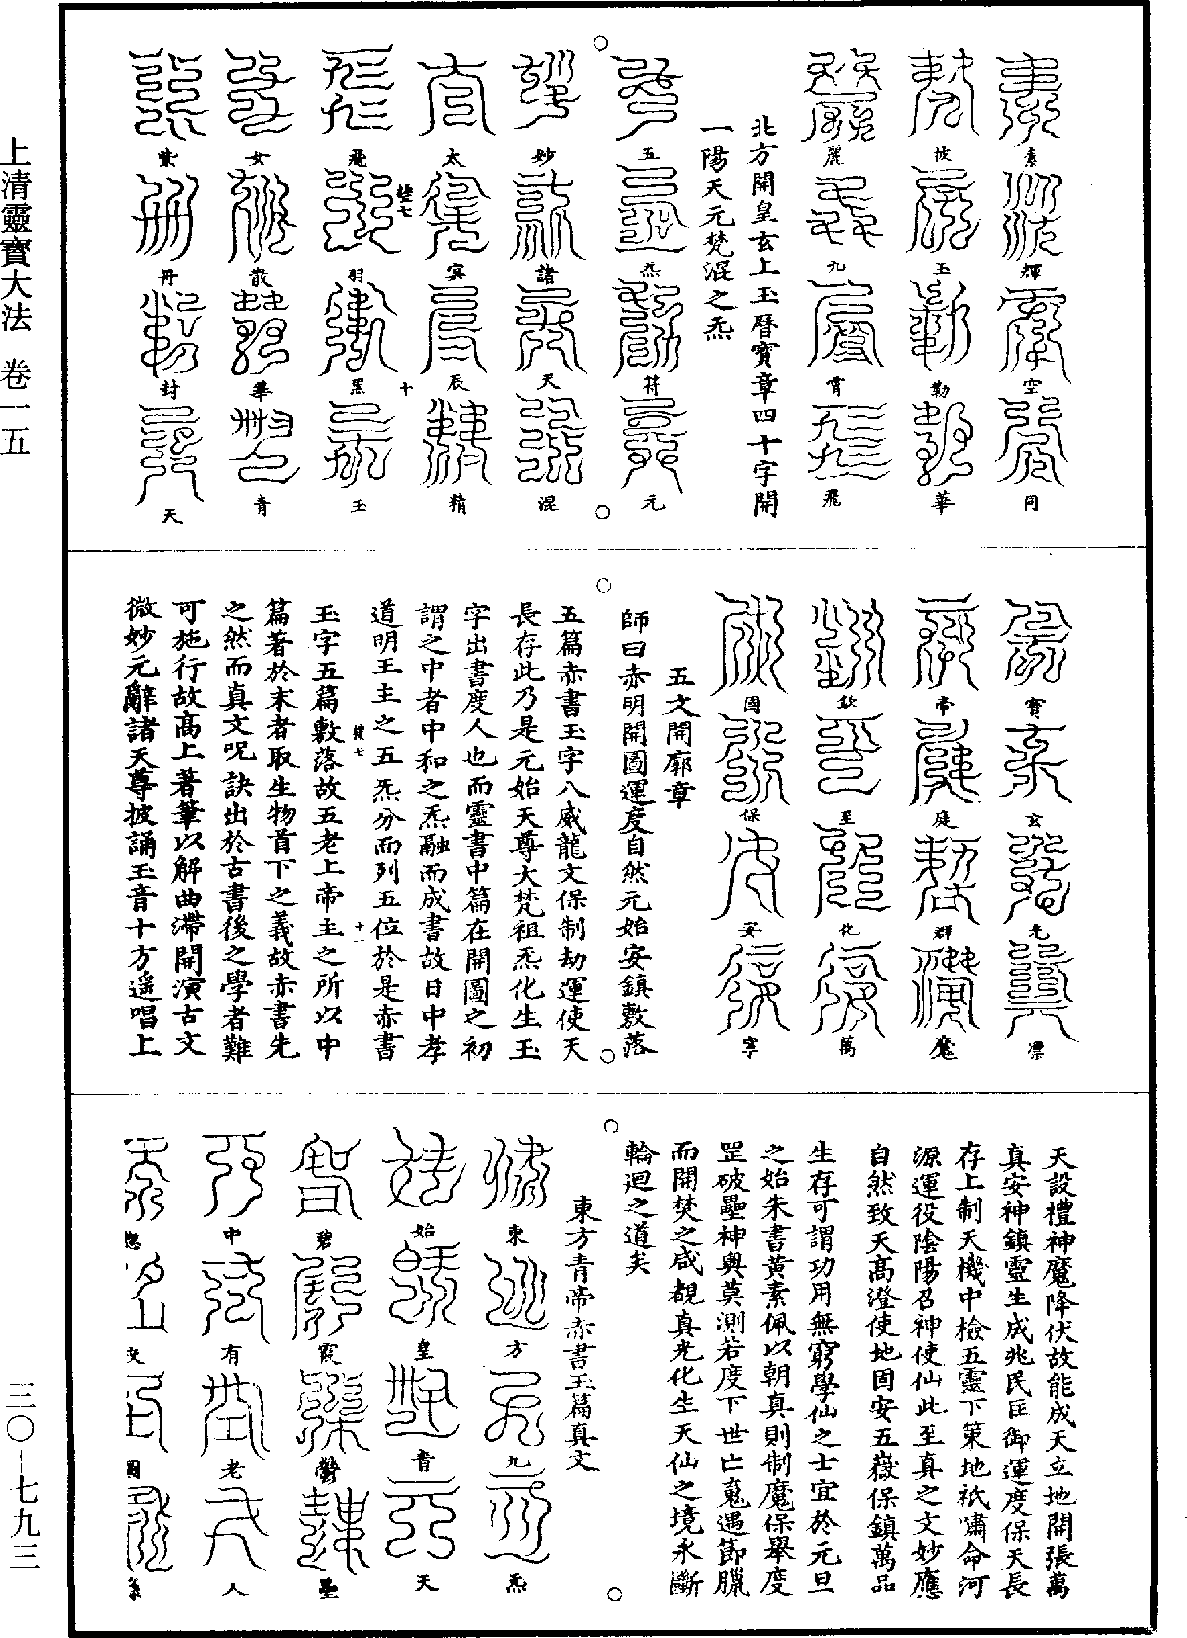 上清靈寶大法 卷一五
三〇—七九三
素 輝 空 同
披 玉 勒 華
麗 九 霄 飛
北方開皇玄上玉曆寶章四十字開
一陽天元梵混之炁
五 炁 符 元
妙 諸 天 混
太 寅 辰 精
飛 羽 黑 玉
女 散 華 青
紫 丹 封 天
寶 玄 光 漂
帝 庭 群 魔
欽 至 化 萬
國 保 安 寧
五文開廓章
師曰赤明開圖運度自然元始安鎮敷落
五篇赤書玉字八威龍文保制劫運使天
長存此乃是元始天尊大梵祖炁化生玉
字出書度人也而靈書中篇在開圖之初
謂之中者中和之炁融而成書故日中孝
道明王主之五炁分而列五位於是赤書
玉字五篇敷落故五老上帝主之所以中
篇著於末者取生物首下之義故赤書先
之然而真文呪訣出於古書後之學者難
可施行故高上著筆以解曲滯開演古文
微妙元辭諸天尊披誦玉音十方遥唱上
天設禮神魔降伏故能成天立地開張萬
真安神鎮靈生成兆民匡御運度保天長
存上制天機中檢五靈下策地祇嘯命河
源運役陰陽召神使仙此至真之文妙應
自然致天高澄使地固安五嶽保鎮萬品
生存可謂功用無窮學仙之士宜於元旦
之始朱書黃素佩以朝真則制魔保舉度
罡破壘神輿莫測若度下世亡䰟遇節臘
而開焚之咸覩真光化生天仙之境永斷
輪迴之道矣
東方青帝赤書玉篇真文
東 方 九 炁
始 皇 青 天
碧 霞 鬱 壘
中 有 老 人